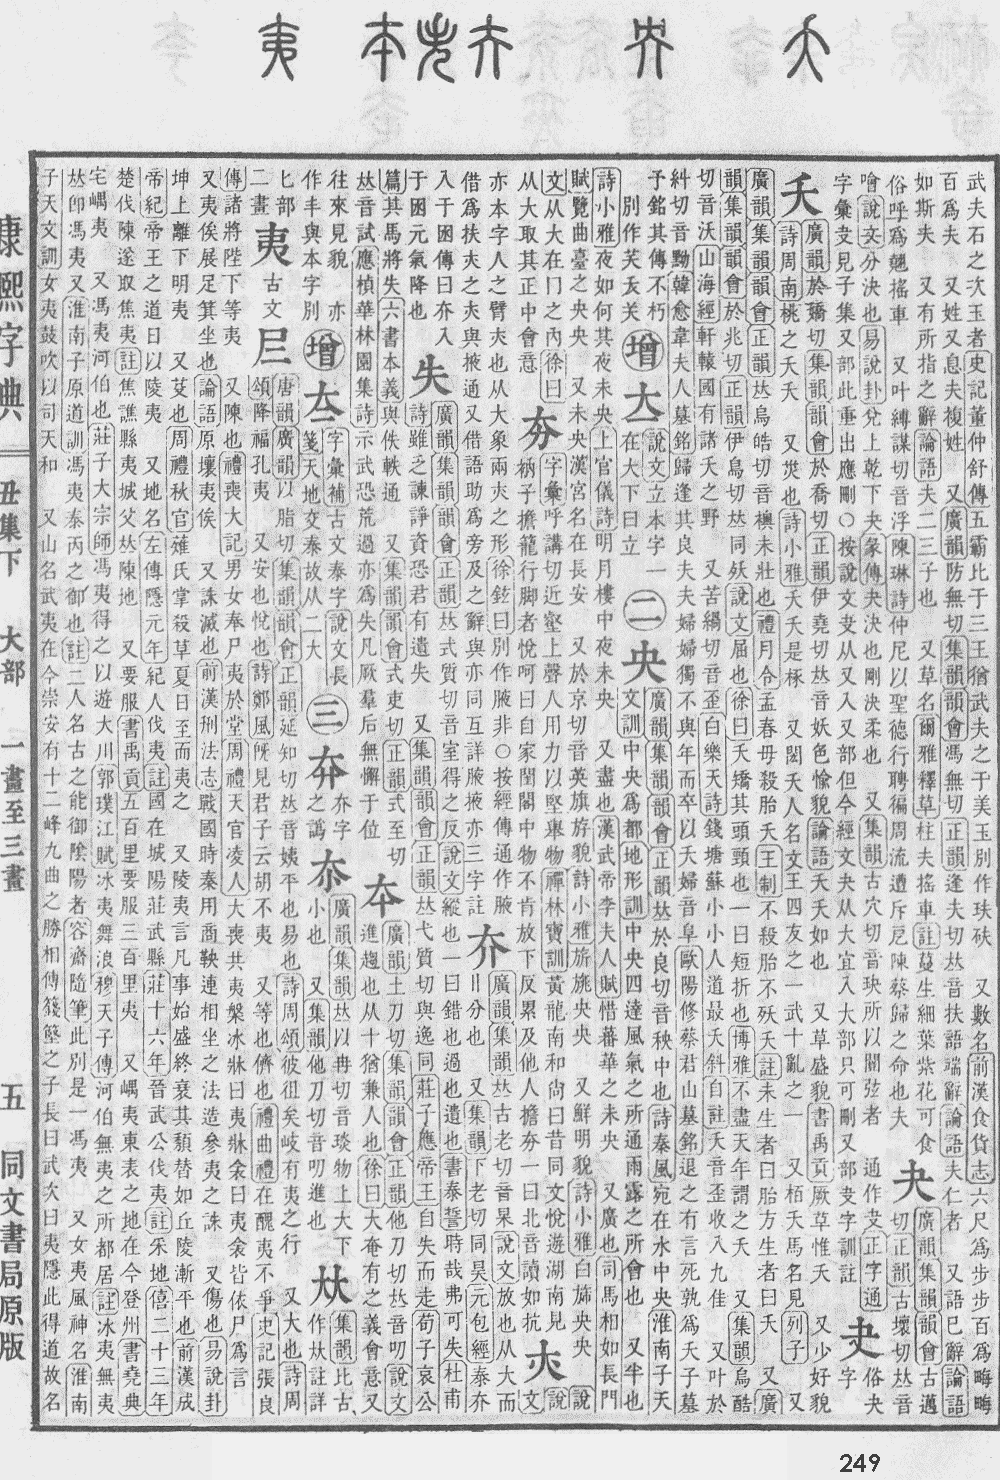 武夫石之次玉者史記董仲舒傳五霸比于三王猶武夫之于美玉別作珷砆 又數名前漢食貨志六尺爲步步百爲畮畮
百爲夫 又姓又息夫複姓 又廣韻防無切集韻韻會馮無切正韻逢夫切𠀤音扶語端辭論語夫仁者 又語已辭論語
如斯夫 又有所指之辭論語夫二三子也 又草名爾雅釋草柱夫搖車註蔓生細葉紫花可食
俗呼爲翹搖車 又叶縛謀切音浮陳琳詩仲尼以聖德行聘徧周流遭斥厄陳蔡歸之命也夫
夬 廣韻集韻韻會古邁切正韻古壞切𠀤音
噲說文分決也易說卦兌上乾下夬彖傳夬決也剛決柔也 又集韻古穴切音玦所以闓弦者 通作叏正字通
叏 俗夬字
字彙叏見子集又部此重出應刪○按說文叏从又入又部但今經文夬从大宜入大部只可刪又部叏字訓註
夭 廣韻於嬌切集韻韻會於喬切正韻伊堯切𠀤音妖色愉貌論語夭夭如也 又草盛貌書禹貢厥草惟夭 又少好貌
詩周南桃之夭夭 又災也詩小雅夭夭是椓 又閎夭人名文王四友之一武十亂之一 又栢夭馬名見列子 又
廣韻集韻韻會正韻𠀤烏皓切音襖未壯也禮月令孟春毋殺胎夭王制不殺胎不殀夭註未生者曰胎方生者曰夭 又廣
韻集韻韻會於兆切正韻伊鳥切𠀤同殀說文屈也徐曰夭矯其頭頸也一曰短折也博雅不盡天年謂之夭 又集韻烏酷
切音沃山海經軒轅國有諸夭之野 又苦緺切音歪白樂天詩錢塘蘇小小人道最夭斜自註夭音歪收入九佳 又叶於
糾切音黝韓愈韋夫人墓銘歸逢其良夫夫婦婦獨不與年而卒以夭婦音阜歐陽修蔡君山墓銘退之有言死孰爲夭子墓
予銘其傳不朽 別作芺夭关
增 𡗓 說文立本字一在大下曰立
二 央 廣韻集韻韻會正韻𠀤於良切音秧中也詩秦風宛在水中央淮南子天
文訓中央爲都地形訓中央四達風氣之所通雨露之所會也 又半也
詩小雅夜如何其夜未央上官儀詩明月樓中夜未央 又盡也漢武帝李夫人賦惜蕃華之未央 又廣也司馬相如長門
賦覽曲臺之央央 又未央漢宮名在長安 又於京切音英旗旂貌詩小雅旂旐央央 又鮮明貌詩小雅白斾央央
㚎 說
文从大在冂之內徐曰从大取其正中會意
夯 字彙呼講切近壑上聲人用力以堅舉物禪林寶訓黃龍南和尙曰昔同文悅遊湖南見
衲子擔籠行脚者悅呵曰自家閨閣中物不肯放下反累及他人擔夯一曰北音讀如抗
亦本字人之臂亦也从大象兩亦之形徐鉉曰別作腋非○按經傳通作腋
夰 廣韻集韻𠀤古老切音杲說文放也从大而
八分也 又集韻下老切同昊元包經泰夰
借爲扶夾之夾與掖通 又借語助爲旁及之辭與亦同互詳腋掖亦三字註
入于困傳曰夰入于困元氣降也
失 廣韻集韻韻會正韻𠀤式質切音室得之反說文縱也一曰錯也過也遺也書泰誓時哉弗可失杜甫
詩雖乏諫諍資恐君有遺失 又集韻韻會正韻𠀤弋質切與逸同莊子應帝王自失而走荀子哀公
篇其馬將失六書本義與佚軼通 又集韻韻會式吏切正韻式至切
𠀤音試應楨華林園集詩示武恐荒過亦爲失凡厥羣后無懈于位
夲 廣韻土刀切集韻韻會正韻他刀切𠀤音叨說文
進趨也从十猶兼人也徐曰大奄有之義會意又
往來見貌 亦作夲與本字別
增 夳 字彙補古文泰字說文長箋天地交泰故从二大
三 夲 夲字之譌
夵 廣韻集韻𠀤以冉切音琰物上大下小也 又集韻他刀切音叨進也
夶 集韻比古作夶註詳
匕部二畫
夷 古文 𡰥 唐韻廣韻以脂切集韻韻會正韻延知切𠀤音姨平也易也詩周頌彼徂矣岐有夷之行 又大也詩周
頌降福孔夷 又安也悅也詩鄭風旣見君子云胡不夷 又等也儕也禮曲禮在醜夷不爭史記張良
傳諸將陛下等夷 又陳也禮喪大記男女奉尸夷於堂周禮天官凌人大喪共夷槃冰牀曰夷牀衾曰夷衾皆依尸爲言
又夷俟展足箕坐也論語原壤夷俟 又誅滅也前漢刑法志戰國時秦用商鞅連相坐之法造參夷之誅 又傷也易說卦
坤上離下明夷 又芟也周禮秋官薙氏掌殺草夏日至而夷之 又陵夷言凡事始盛終衰其頹替如丘陵漸平也前漢成
帝紀帝王之道日以陵夷 又地名左傳隱元年紀人伐夷註國在城陽莊武縣莊十六年晉武公伐夷註采地僖二十三年
楚伐陳遂取焦夷註焦譙縣夷城父𠀤陳地 又要服書禹貢五百里要服三百里夷 又嵎夷東表之地在今登州書堯典
宅嵎夷 又馮夷河伯也莊子大宗師馮夷得之以遊大川郭璞江賦冰夷舞浪穆天子傳河伯無夷之所都居註冰夷無夷
𠀤卽馮夷又淮南子原道訓馮夷泰丙之御也註二人名古之能御陰陽者容齋隨筆此別是一馮夷 又女夷風神名淮南
子天文訓女夷鼓吹以司天和 又山名武夷在今崇安有十二峰九曲之勝相傳籛鏗之子長曰武次曰夷隱此得道故名
康熙字典 丑集下 大部 一畫至三畫 五 同文書局原版
249